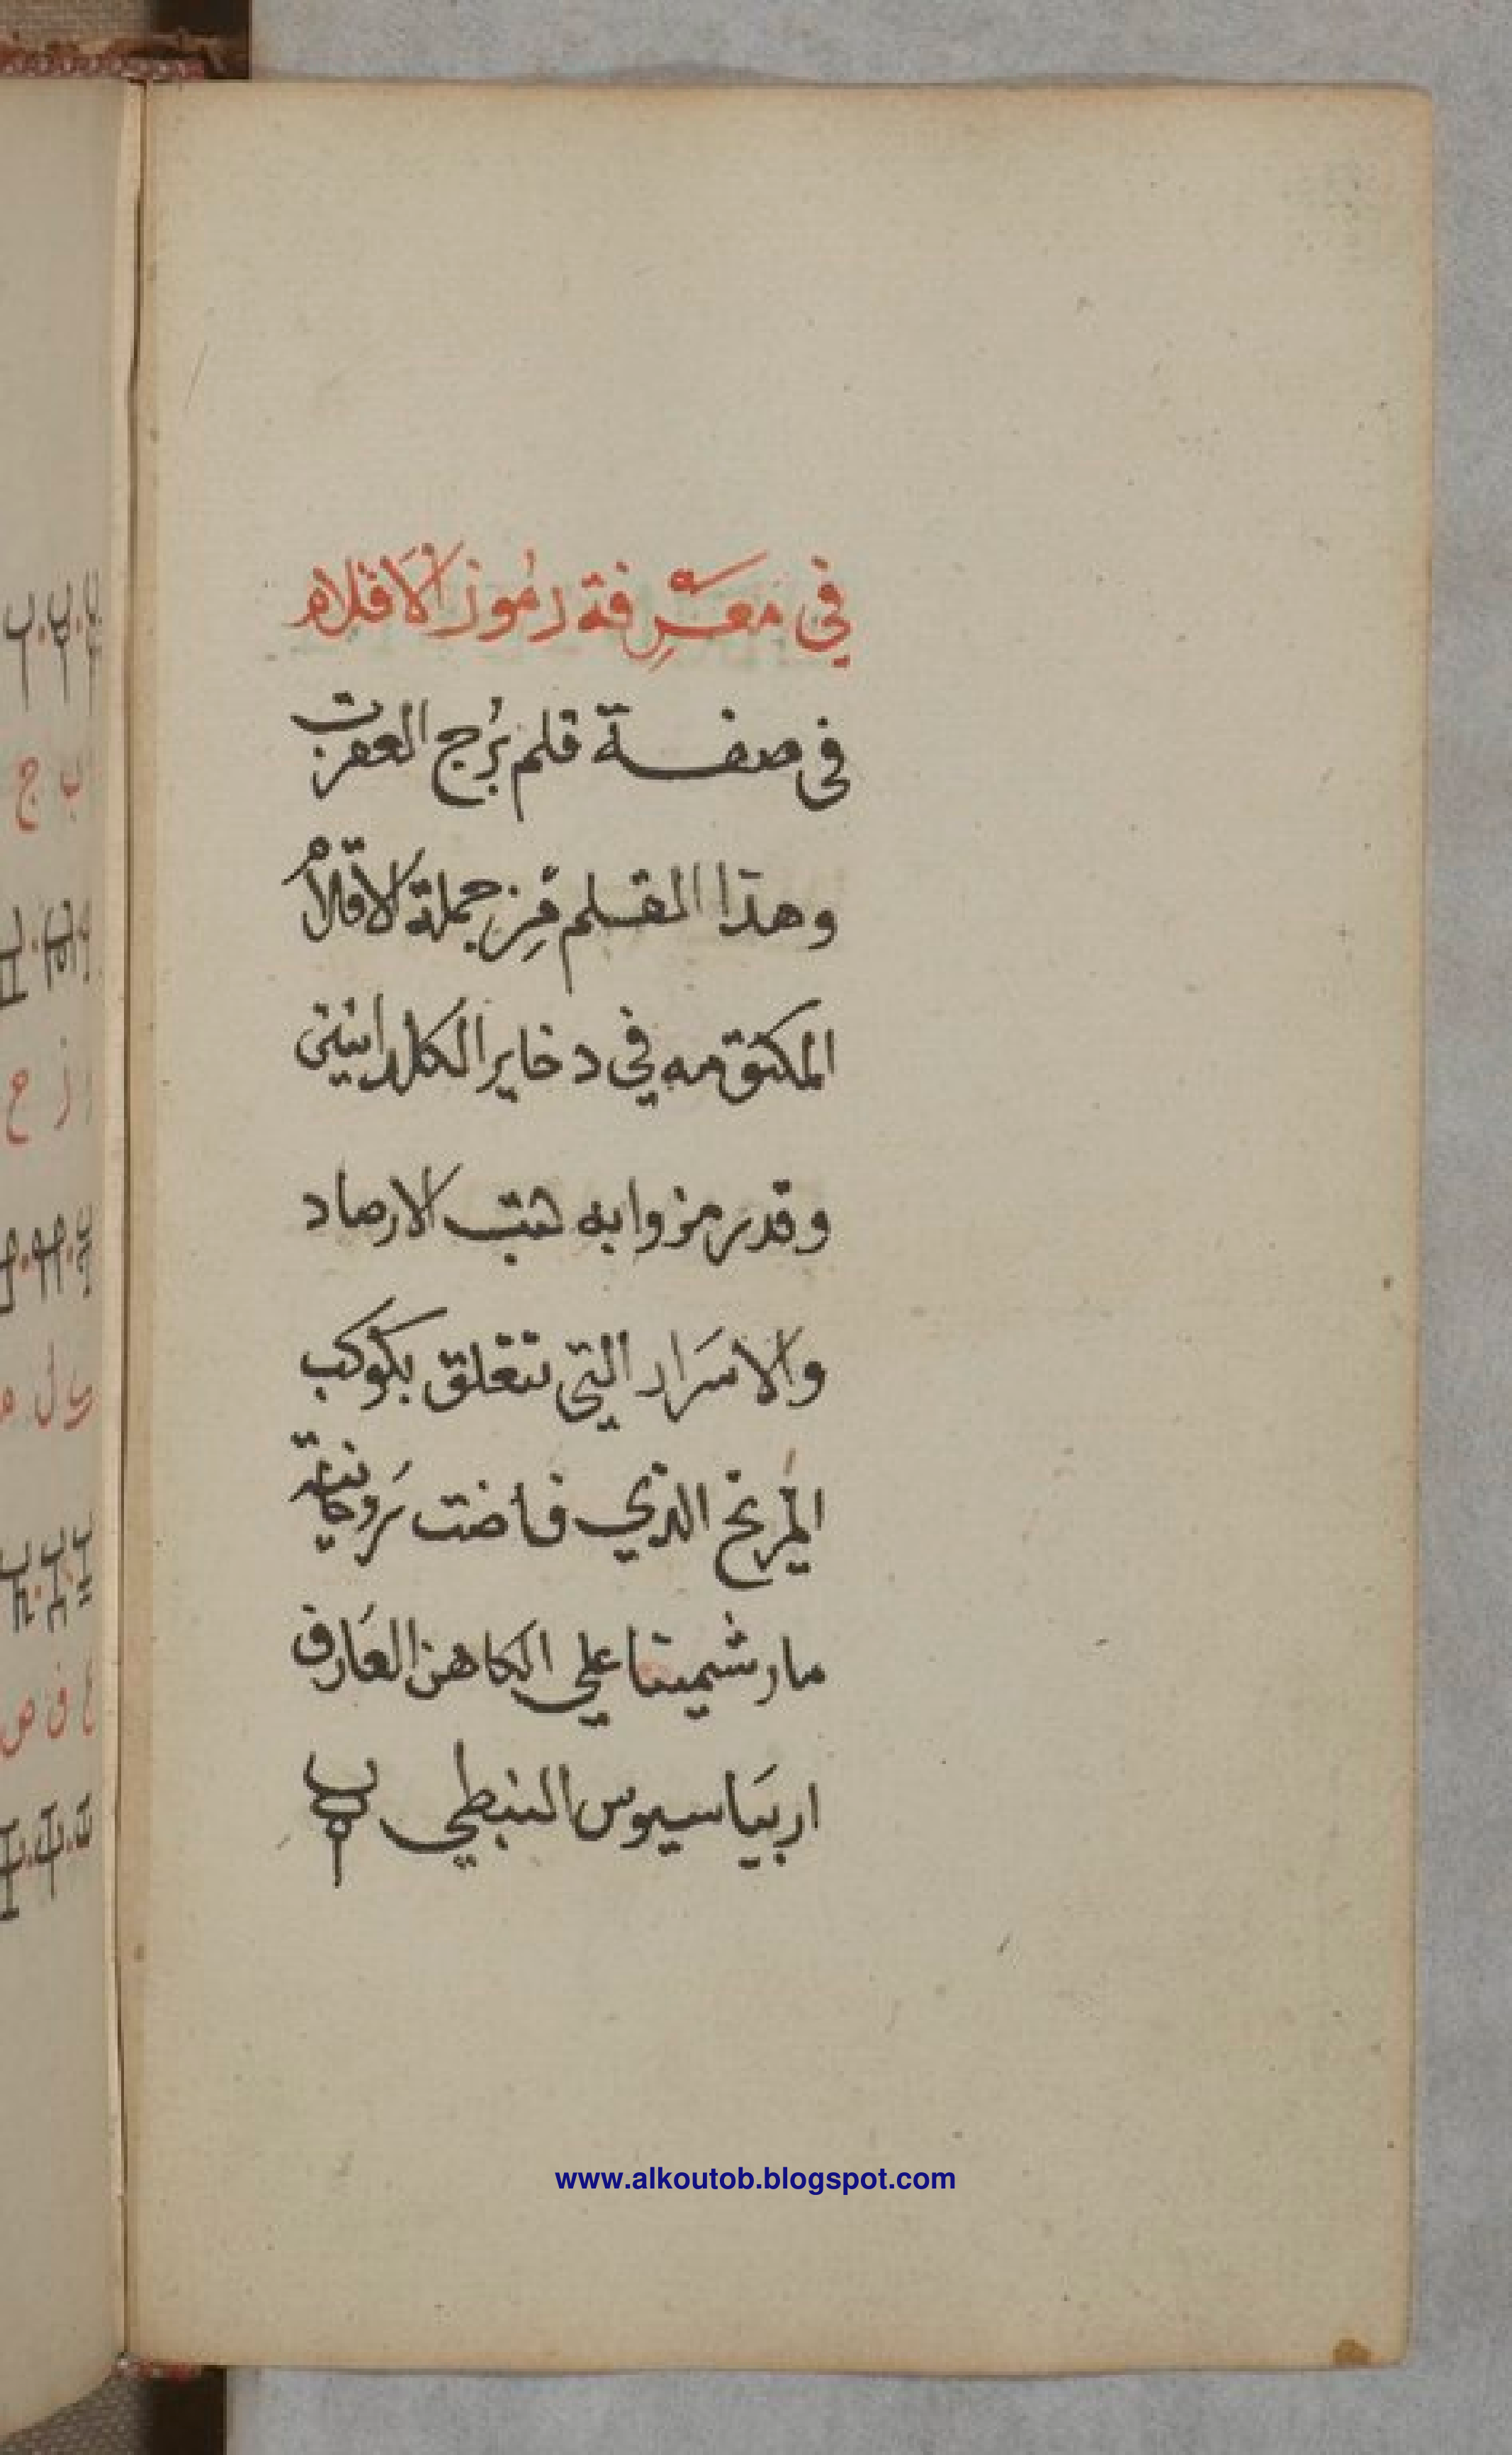 في معرفة رموز الاقلام
فى صفة قلم برج العقرب
وهذا القلم من جملة الاقلام
المكتومه في دخاير الكلدانيين
وقد رمزوا به كتب الارصاد
والاسرار التي تتعلق بكوكب
المريخ الذي فاضت روحانيته
مارشميتا علي الكاهن العارف
اربياسيوس النبطي
www.alkoutob.blogspot.com